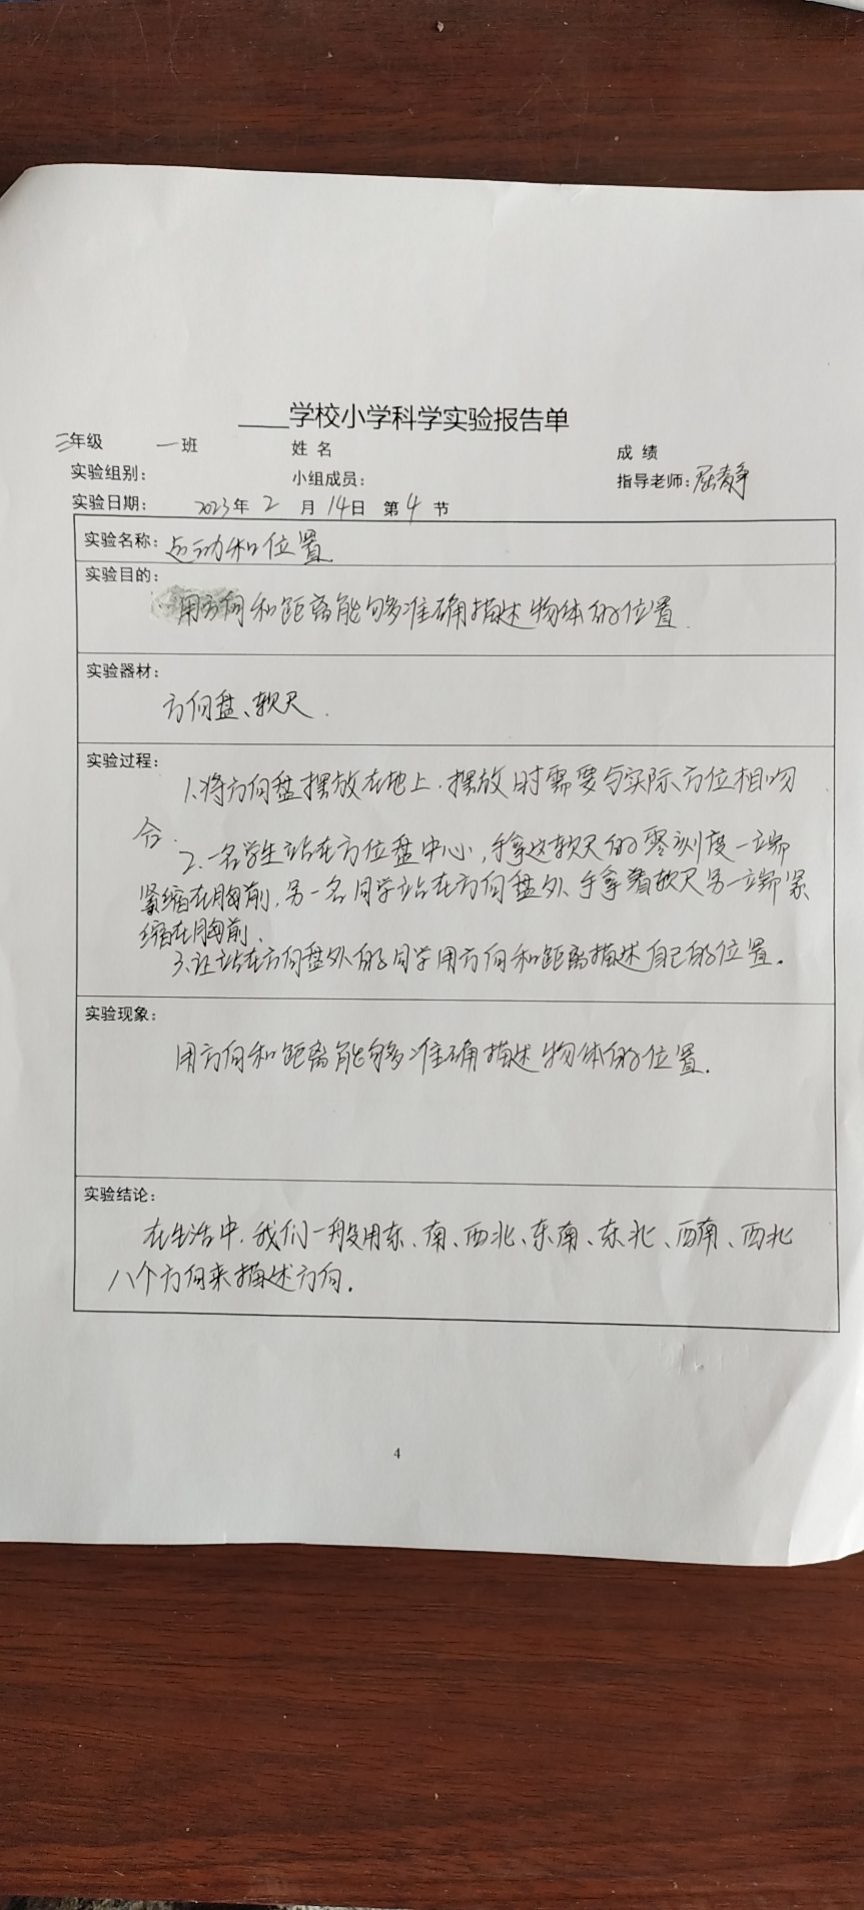 ____学校小学科学实验报告单
三年级 一班 姓 名 成 绩
实验组别： 小组成员： 指导老师：屈静
实验日期： 2023年 2 月 14日 第 4 节
实验名称：运动和位置
实验目的：
用方向和距离能够准确描述物体的位置.
实验器材：
方向盘、软尺.
实验过程：
1.将方向盘摆放在地上.摆放时需要与实际方位相吻
合.
2.一名学生站在方位盘中心,手拿这软尺的零刻度一端
紧缩在胸前,另一名同学站在方向盘外手拿着软尺另一端紧
缩在胸前.
3.让站在方向盘外的同学用方向和距离描述自己的位置.
实验现象：
用方向和距离能够准确描述物体的位置.
实验结论：
在生活中.我们一般用东、南、西北、东南、东北、西南、西北
八个方向来描述方向.
4